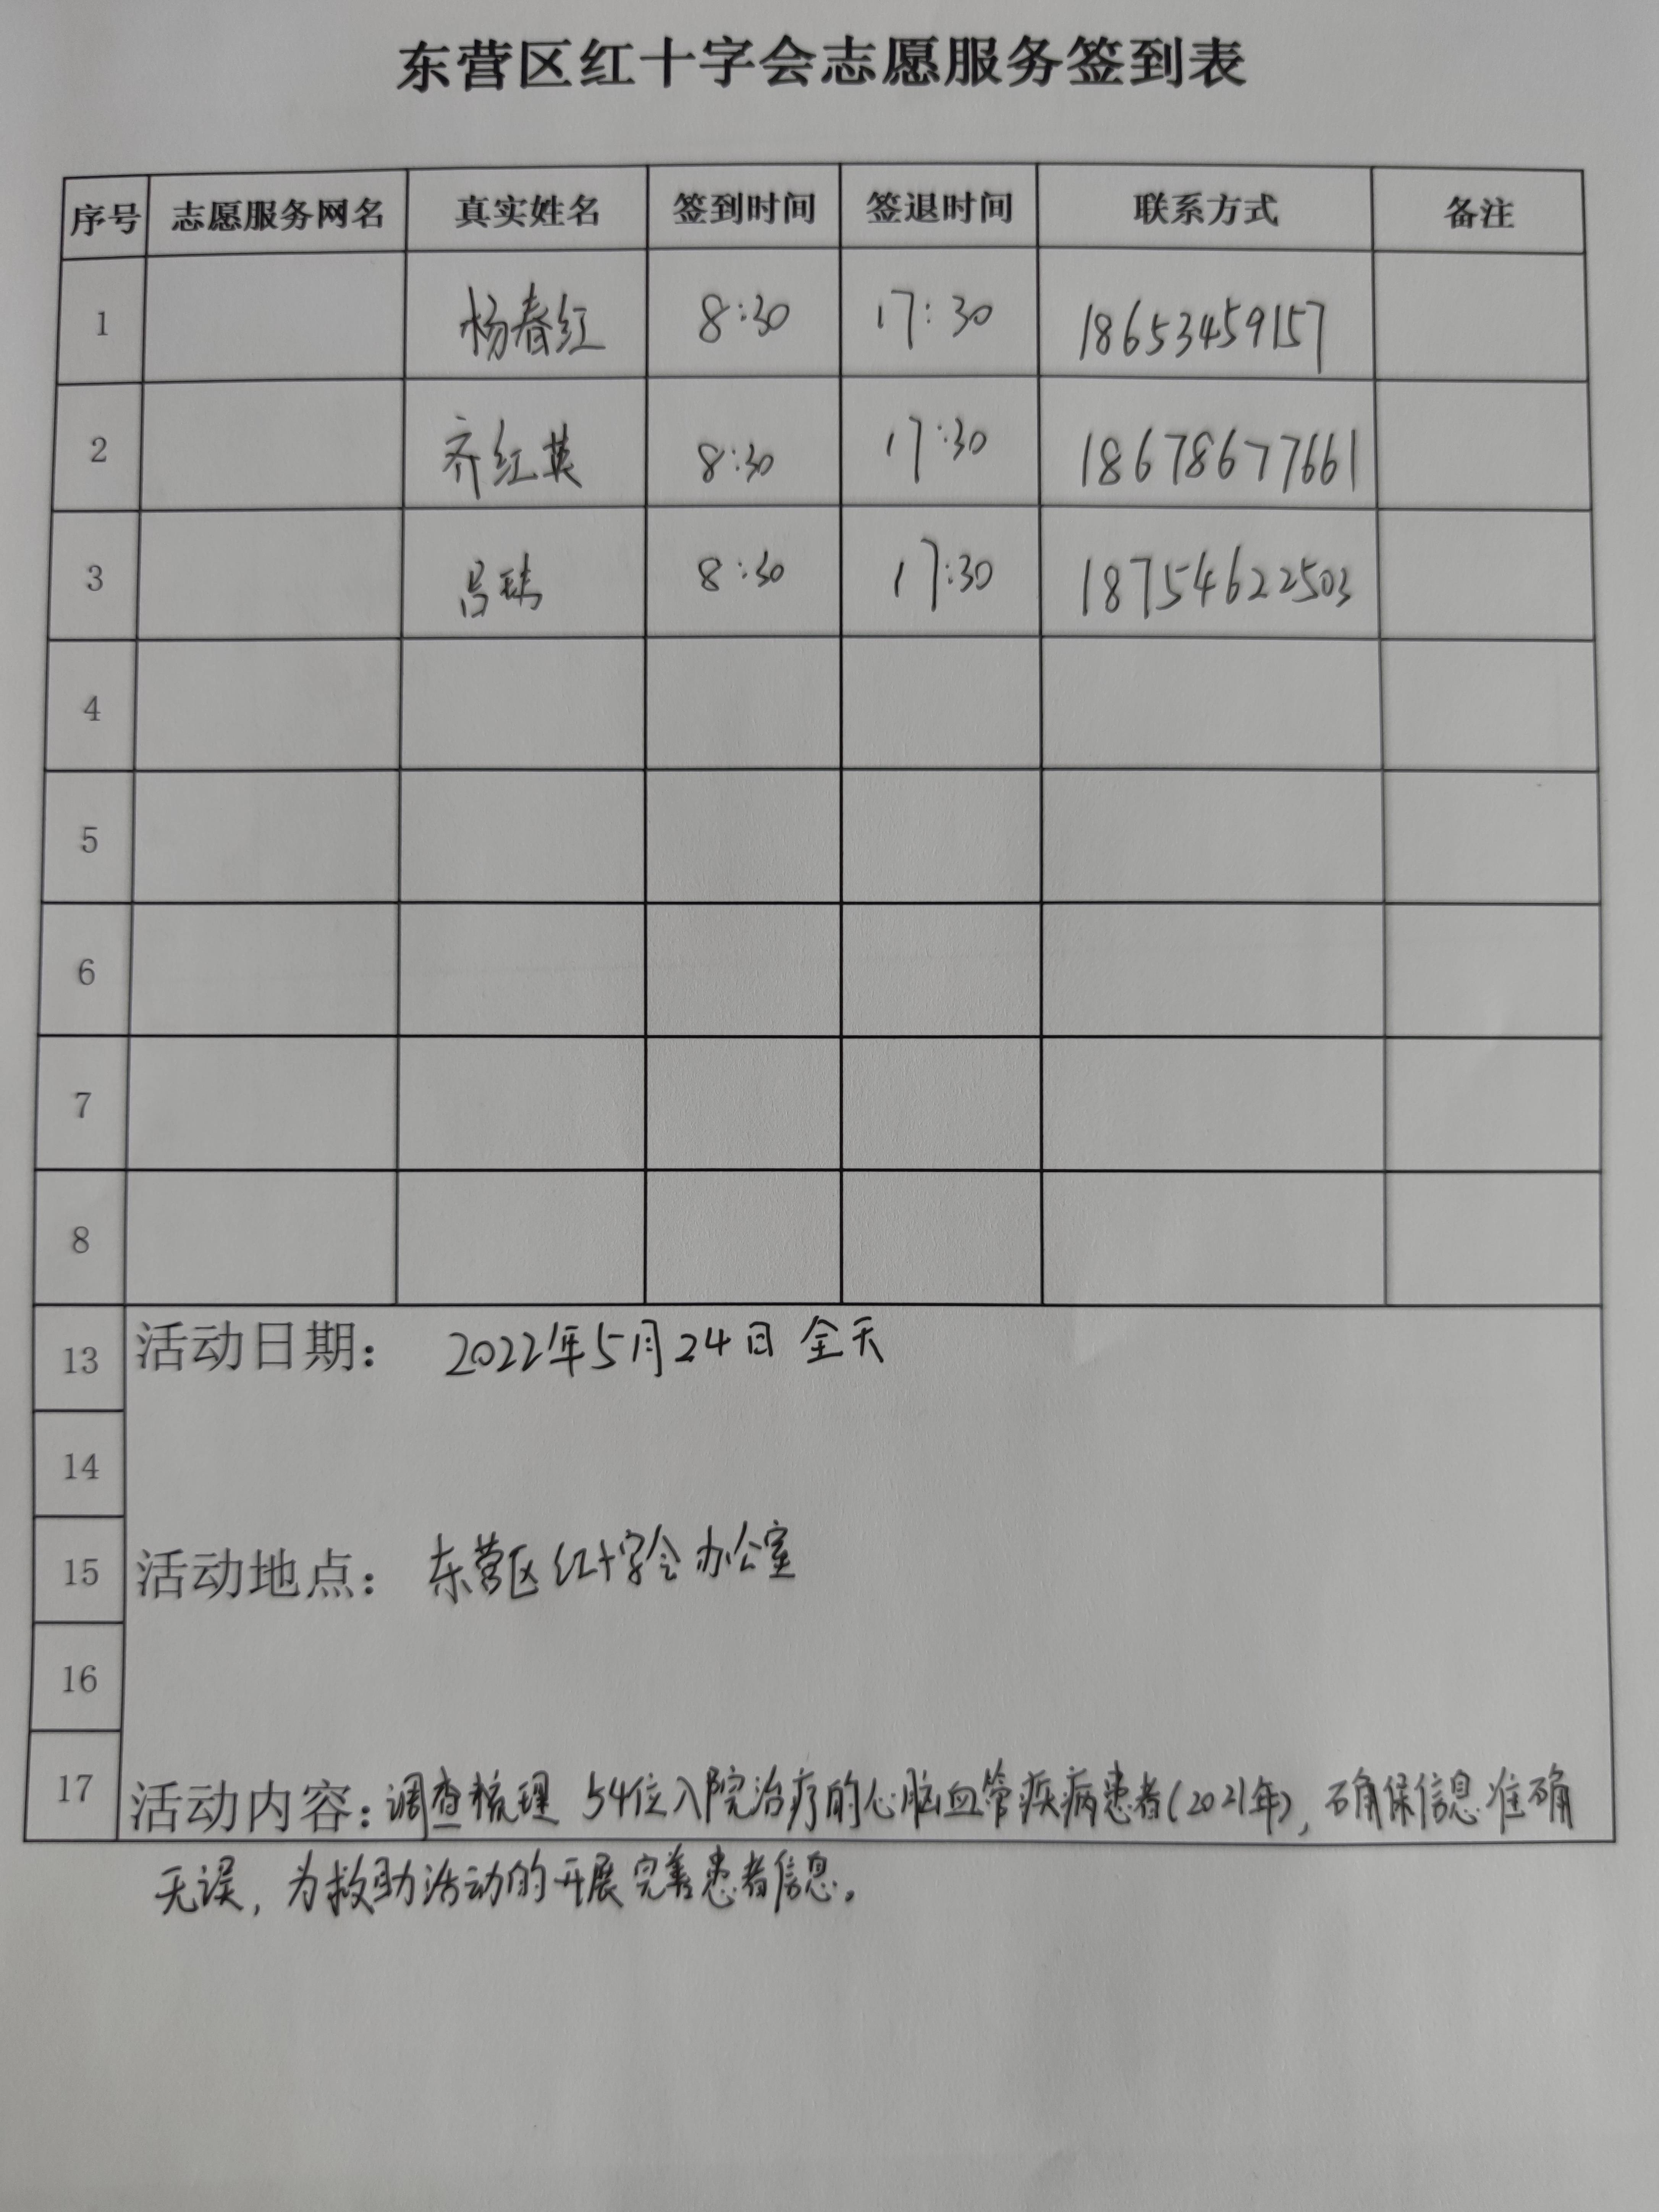 东营区红十字会志愿服务签到表
序号 志愿服务网名 真实姓名 签到时间 签退时间 联系方式 备注
1 杨春红 8:30 17:30 18653459157
2 齐红英 8:30 17:30 18678677661
3 吕 8:30 17:30 18754622503
4
5
6
7
8
13 活动日期: 2022年5月24日 全天
14
15 活动地点: 东营区红十字会办公室
16
17 活动内容:调查梳理 54位入院治疗的心脑血管疾病患者(2021年),确保信息准确
无误,为救助活动的开展完善患者信息。